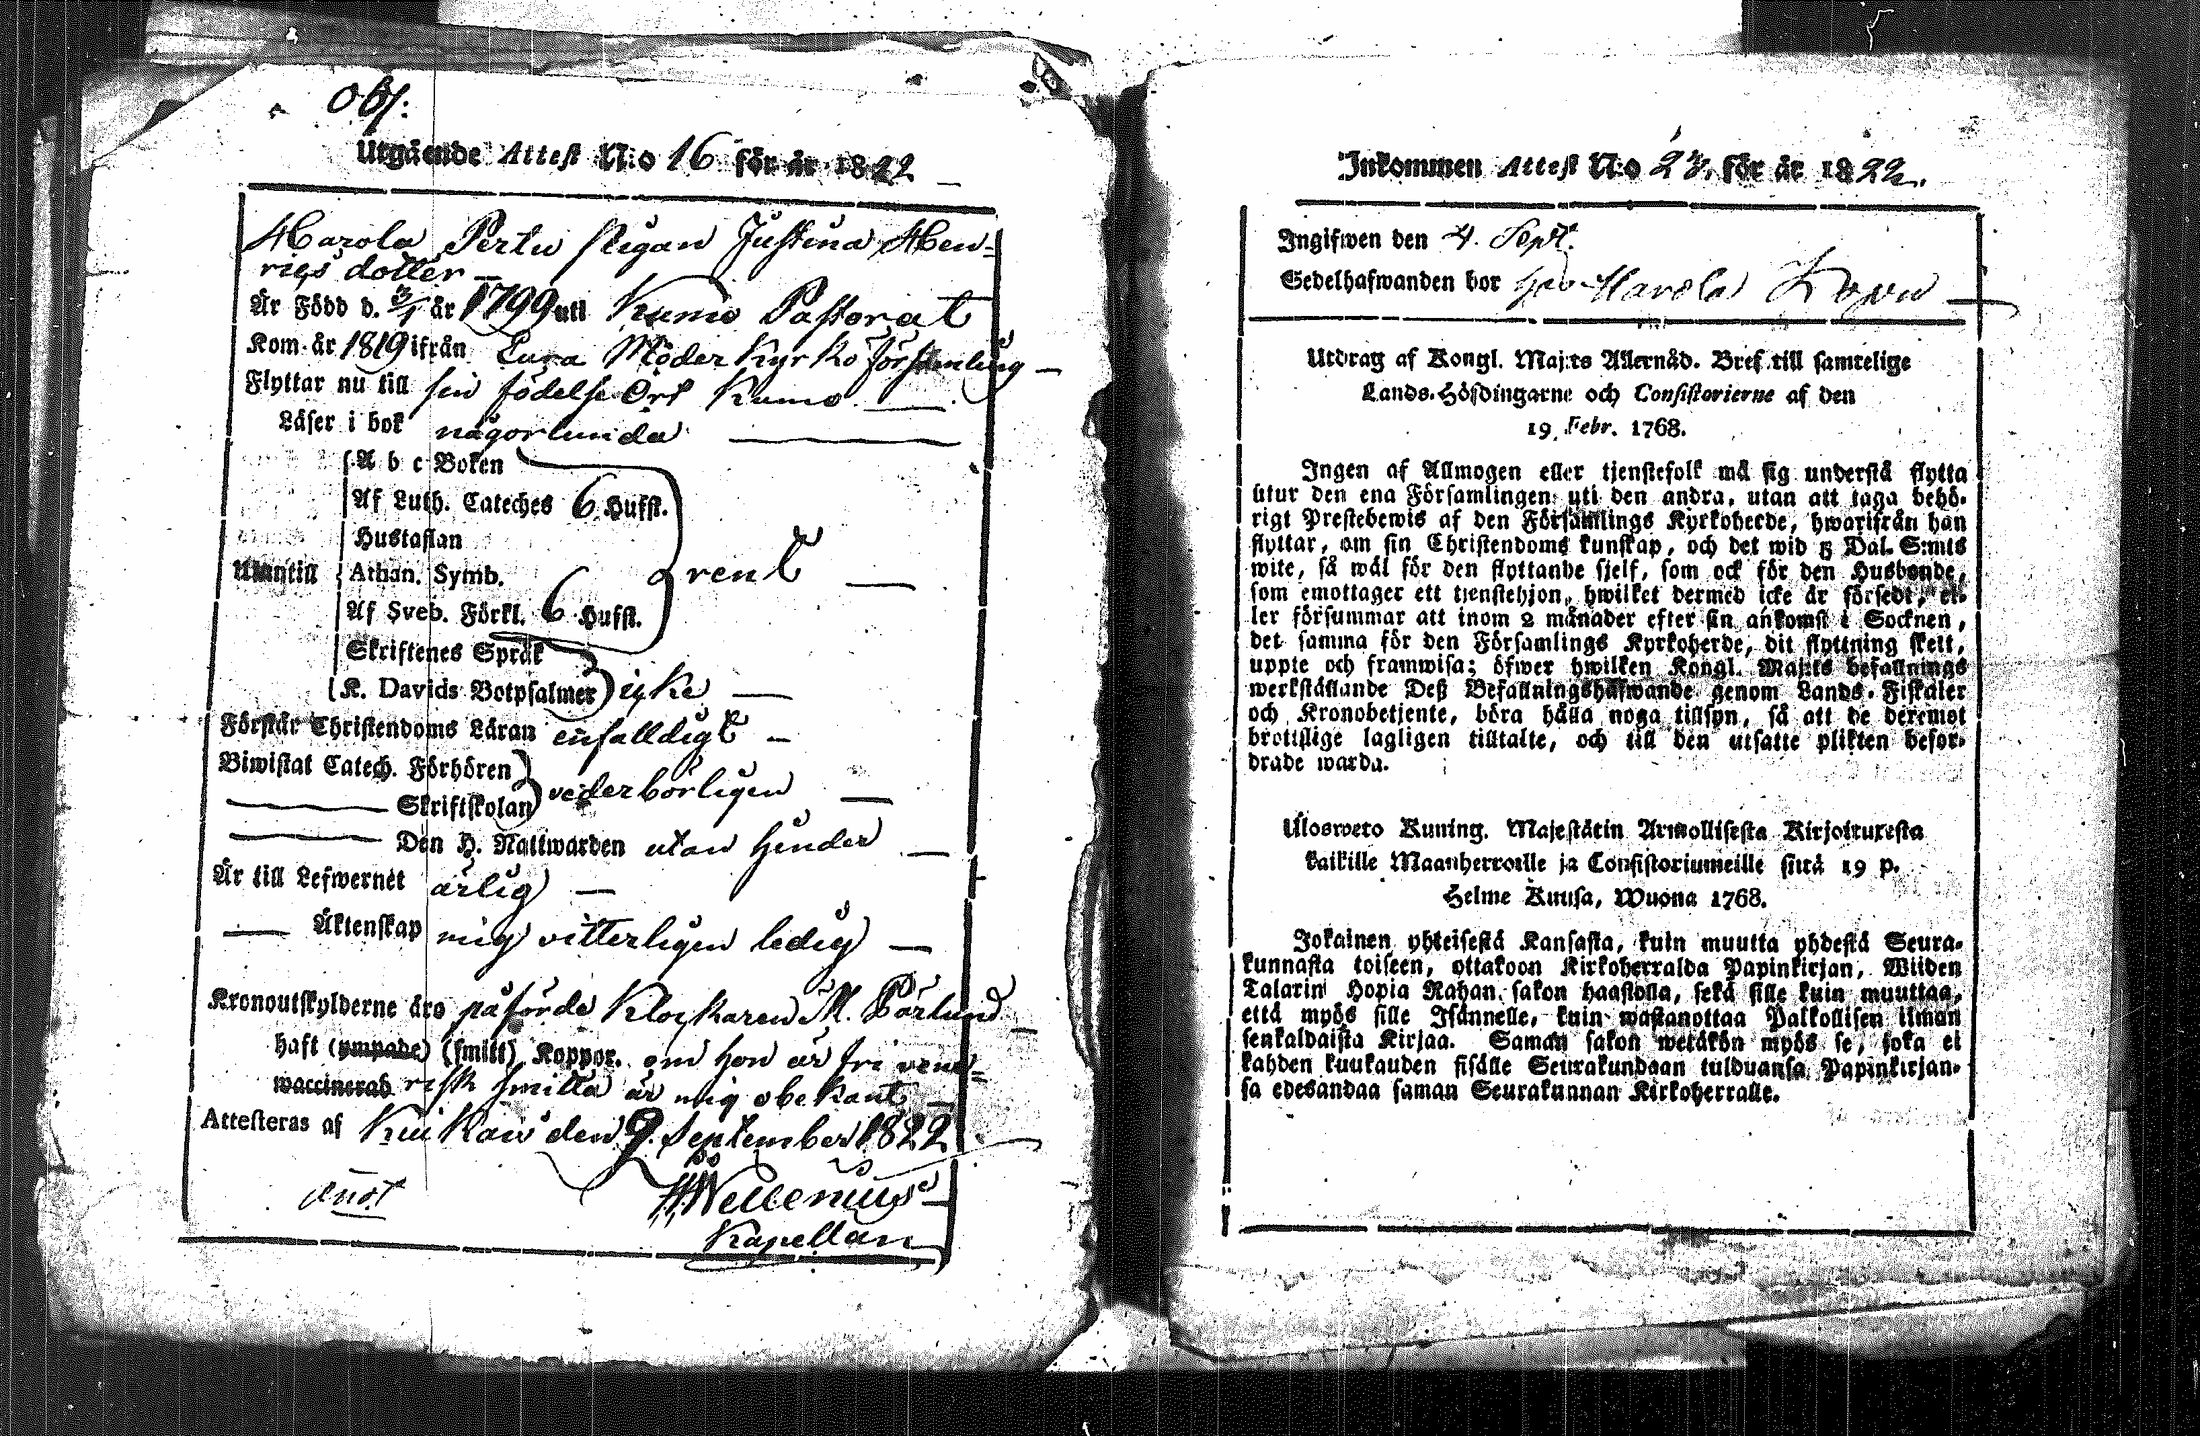 Obs:
Utgående Attest N:o 16 för år 1822
Harola Pertu Pigan Justina Hen-
rigs dotter
Är Född d. 3/1 år 1799 uti Kumo Pastorat
Kom år 1819 ifrån Eura Moder Kyrko församling
Flyttar nu till sin födelse Ort Kumo
Läser i bok någorlunda
A b c Boken
Af Luth. Cateches 6 Hufst.
Hustaflan
Utantill Athan. Symb. rent
Af Sveb. Förkl. 6 Hufst.
Skriftenes Språk
K. Davids Botpsalmer icke
Förstår Christendoms Läran enfalldigt
Biwistat Catech. Förhören
Skriftskolan vederbörligen
Den H. Nattwarden utan hinder
Är till Lefwernet ärlig
Äktenskap mig vitterligen ledig
Kronoutskylderne äro påförde Klockaren M. Pärlund
haft (ympade) (smitt) Koppor. om hon är fri vene-
waccinerad risk smitta är mig obekant
Attesteras af Kiukais den 9. September 1822
Wellenius
Kapellan
Inkommen Attest N:o 23. för år 1822.
Ingifwen den 4. Sept.
Sedelhafwanden bor Harola
Utdrag af Kongl. Maj:ts Allernåd. Bref till samtelige
Lands-Höfdingarne och Consistorierne af den
19. Febr. 1768.
Ingen af Allmogen eller tjenstefolk må sig understå flytta
utur den ena Församlingen uti den andra, utan att taga behö-
rigt Prestebewis af den Församlings Kyrkoherde, hwarifrån han
flyttar, om sin Christendoms kunskap, och det wid 5 Dal. S:mts
wite, så wäl för den flyttande sjelf, som ock för den Husbonde,
som emottager ett tjenstehjon, hwilket dermed icke är försedt, el-
ler försummar att inom 2 månader efter sin ankomst i Socknen,
det samma för den Församlings Kyrkoherde, dit flyttning skett,
uppte och framwisa; öfwer hwilken Kongl. Maj:ts befallnings
werkställande Deß Befallningshafwande genom Lands-Fiskaler
och Kronobetjente, böra hålla noga tillsyn, så att de deremot
brottslige lagligen tilltalte, och till den utsatte plikten befor-
drade warda.
Ulosweto Kuning. Majestätin Armollisesta Kirjoituxesta
kaikille Maanherroille ja Consistoriumeille siitä 19 p.
Helme Kuusa, Wuona 1768.
Jokainen yhteisestä Kansasta, kuin muutta yhdestä Seura-
kunnasta toiseen, ottakoon Kirkoherralda Papinkirjan, Wiiden
Talarin Hopia Rahan sakon haastolla, sekä sille kuin muuttaa,
että myös sille Isännelle, kuin wastanottaa Palkollisen ilman
senkaldaista Kirjaa. Saman sakon wetäkön myös se, joka ei
kahden kuukauden sisälle Seurakundaan tulduansa Papinkirjan-
sa edesandaa saman Seurakunnan Kirkoherralle.